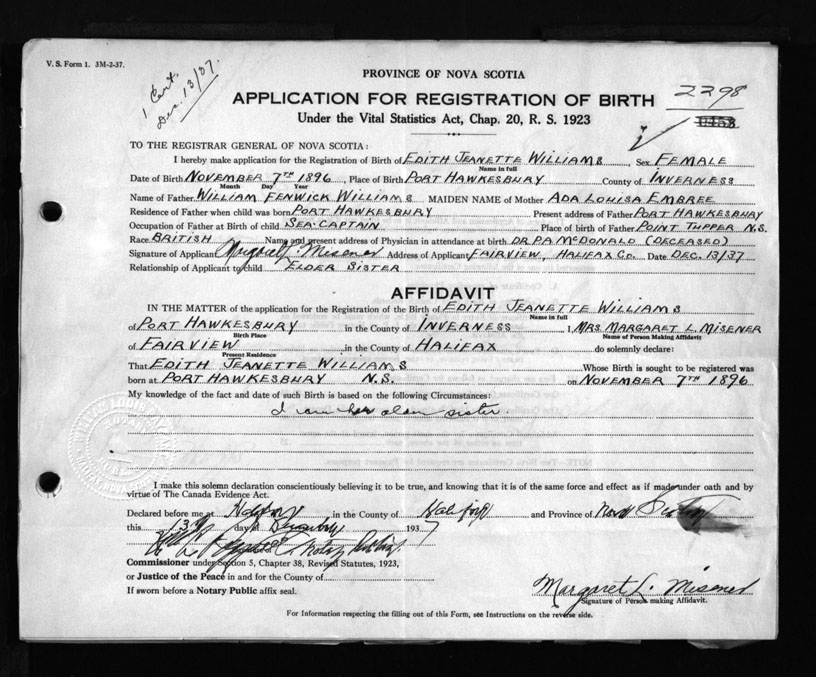 V. S. Form 1. 3M-2-37.
1 Cert.
Dec. 13/37.
PROVINCE OF NOVA SCOTIA
APPLICATION FOR REGISTRATION OF BIRTH 2298
Under the Vital Statistics Act, Chap. 20, R. S. 1923
TO THE REGISTRAR GENERAL OF NOVA SCOTIA:
I hereby make application for the Registration of Birth of EDITH JEANETTE WILLIAMS, Sex FEMALE
Name in full
Date of Birth NOVEMBER 7TH 1896, Place of Birth PORT HAWKESBURY County of INVERNESS
Month Day Year
Name of Father WILLIAM FENWICK WILLIAMS MAIDEN NAME of Mother ADA LOUISA EMBREE
Residence of Father when child was born PORT HAWKESBURY Present address of Father PORT HAWKESBURY
Occupation of Father at Birth of child SEA-CAPTAIN Place of birth of Father POINT TUPPER N.S.
Race BRITISH Name and present address of Physician in attendance at birth DR. P.A. MCDONALD (DECEASED)
Signature of Applicant Margaret L. Misener Address of Applicant FAIRVIEW, HALIFAX CO. Date DEC. 13/37
Relationship of Applicant to child ELDER SISTER
AFFIDAVIT
IN THE MATTER of the application for the Registration of the Birth of EDITH JEANETTE WILLIAMS
Name in full
of PORT HAWKESBURY in the County of INVERNESS I, MRS MARGARET L. MISENER
Birth Place Name of Person Making Affidavit
of FAIRVIEW in the County of HALIFAX do solemnly declare:
Present Residence
That EDITH JEANETTE WILLIAMS Whose Birth is sought to be registered was
born at PORT HAWKESBURY N.S. on NOVEMBER 7TH 1896
My knowledge of the fact and date of such Birth is based on the following Circumstances:
I am her older sister.
I make this solemn declaration conscientiously believing it to be true, and knowing that it is of the same force and effect as if made under oath and by
virtue of The Canada Evidence Act.
Declared before me at Halifax in the County of Halifax and Province of Nova Scotia
this 13th day of December 1937
Notary Public
Commissioner under Section 5, Chapter 38, Revised Statutes, 1923,
or Justice of the Peace in and for the County of
If sworn before a Notary Public affix seal.
Margaret L. Misener
Signature of Person making Affidavit.
For Information respecting the filling out of this Form, see Instructions on the reverse side.